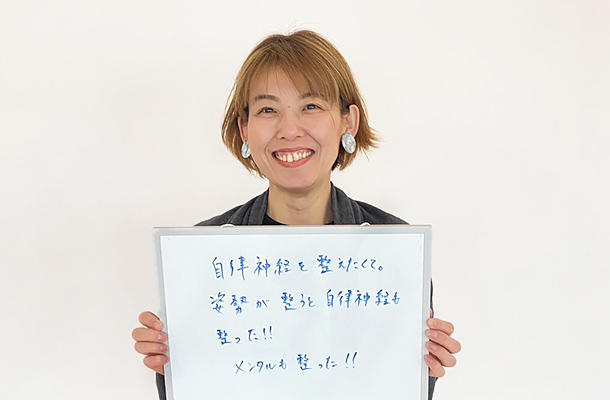 自律神経を整えたくて。
姿勢が整うと自律神経も
整った!!
メンタルも整った!!